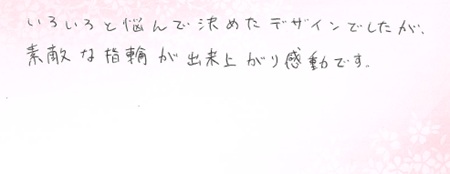 いろいろと悩んで決めたデザインでしたが、
素敵な指輪が出来上がり感動です。